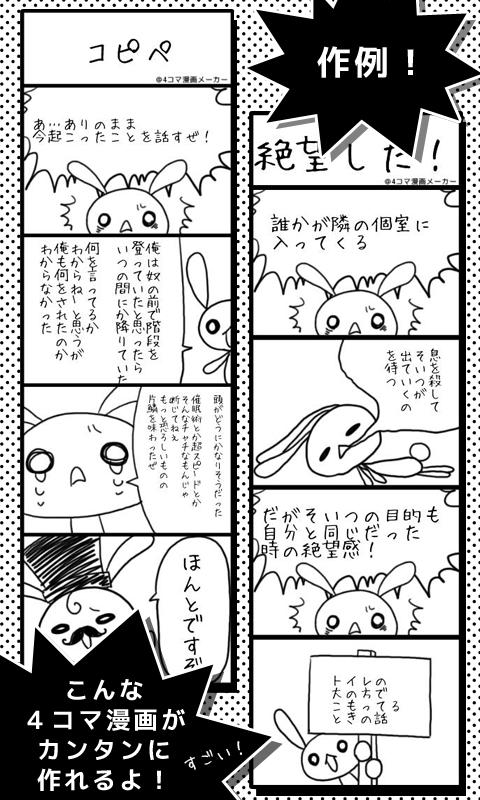 作例！
コピペ
@4コマ漫画メーカー
あ…ありのまま
今起こったことを話すぜ！
俺は奴の前で階段を
登っていたと思ったら
いつの間にか降りていた
何を言ってるか
わからねーと思うが
俺も何をされたのか
わからなかった
頭がどうにかなりそうだった
催眠術とか超スピードとか
そんなチャチなもんじゃ
断じてねえ
もっと恐ろしいものの
片鱗を味わったぜ
ほんとですぞ
絶望した！
@4コマ漫画メーカー
誰かが隣の個室に
入ってくる
息を殺して
そいつが
出ていくの
を待つ
だがそいつの目的も
自分と同じだった
時の絶望感！
トイレの
大の方で
こもってる
ときの話
こんな
４コマ漫画が
カンタンに
作れるよ！
すごい！